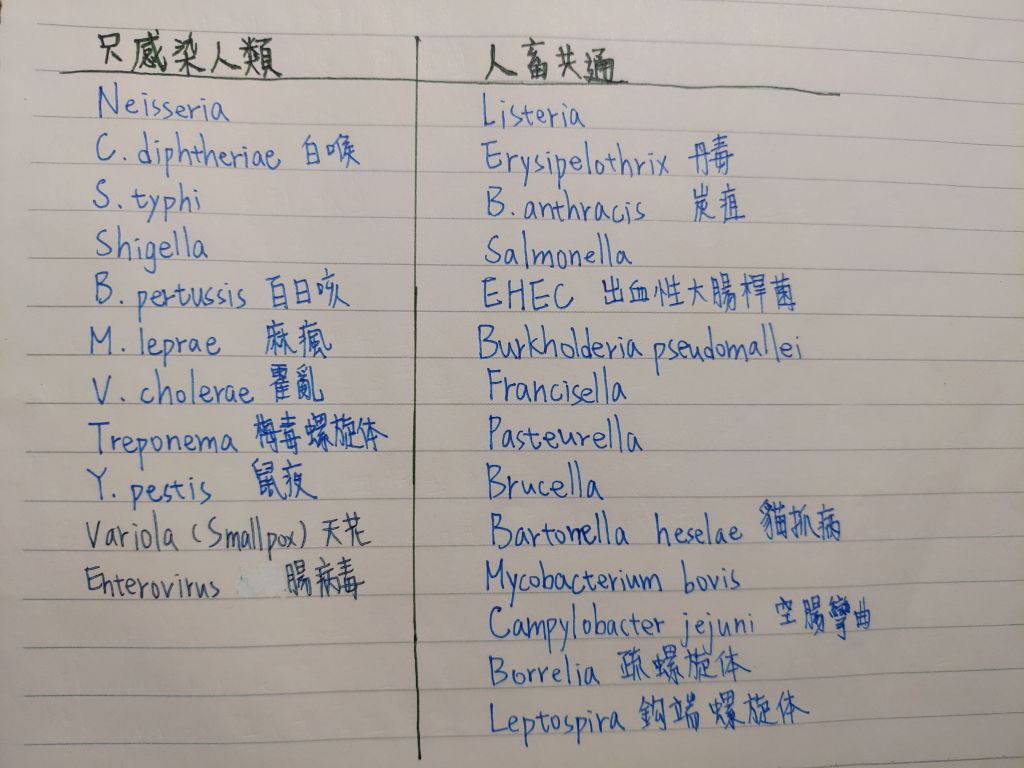 只感染人類
Neisseria
C. diphtheriae 白喉
S. typhi
Shigella
B. pertussis 百日咳
M. leprae 麻瘋
V. cholerae 霍亂
Treponema 梅毒螺旋体
Y. pestis 鼠疫
Variola (Smallpox) 天花
Enterovirus 腸病毒
人畜共通
Listeria
Erysipelothrix 丹毒
B. anthracis 炭疽
Salmonella
EHEC 出血性大腸桿菌
Burkholderia pseudomallei
Francisella
Pasteurella
Brucella
Bartonella heselae 貓抓病
Mycobacterium bovis
Campylobacter jejuni 空腸彎曲
Borrelia 疏螺旋体
Leptospira 鉤端螺旋体